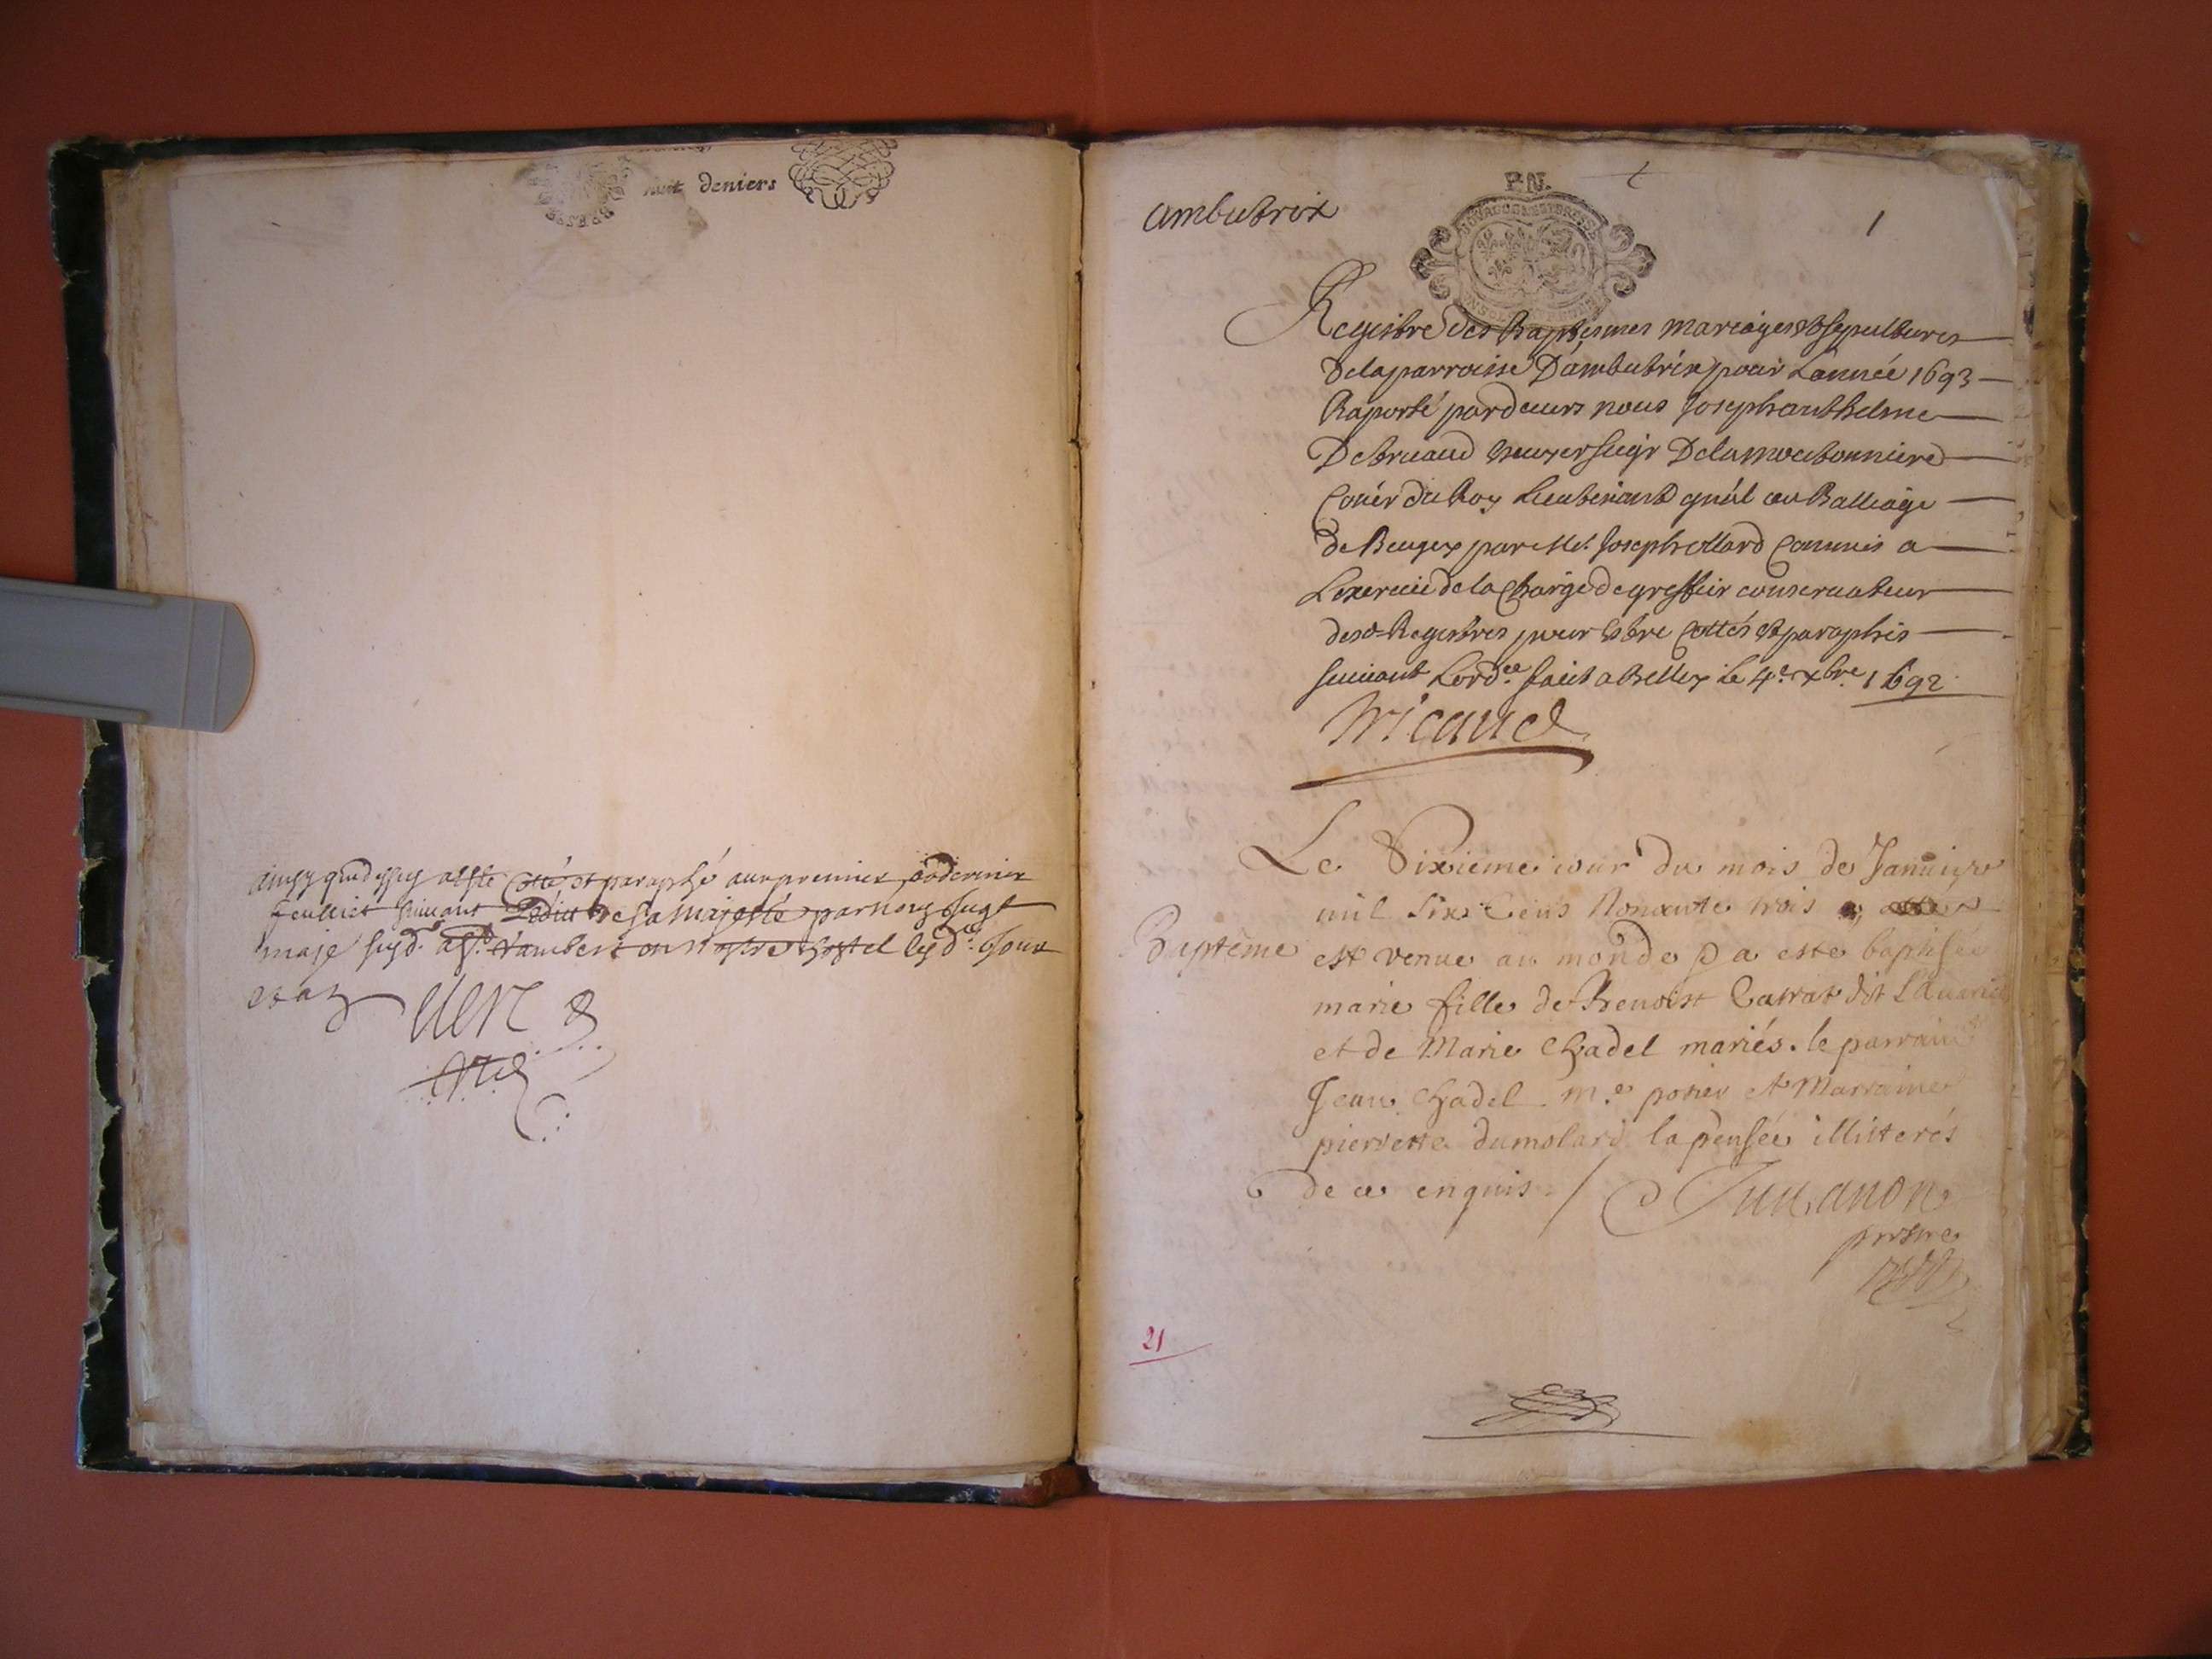 huit deniers
ainsy que dessus a esté cotté et paraphé aux premier et dernier
feuillet suivant l'edict de sa majesté par nous juge
maje susd. en nostre hostel lesd. jour
et an
ambutrix
1
Registre des Baptesmes mariages et sepultures
de la parroisse D'ambutrix pour L'année 1693
Raporté pardevers nous Joseph anthelme
De Tricaud escuyer sieigr De la moutonniere
Coner du Roy Lieutenant gnál au Balliage
de Beugey par Me. Joseph Commis a
L'exercice de la Charge de greffier conservateur
desd. Registres pour Estre Cottés et paraphés
suivant L'ordce. fait a Belley le 4e. xbre. 1692
Tricaud
Le Dixieme iour du mois de Januier
mil Six Cens Nonante trois
Baptême est venue au monde & a esté baptisée
marie fille de Benoist dit
et de Marie Chadel mariés. le parrain
Jean Chadel. m.e potier et Marraine
pierrette dumolard la pensée illitterés
de ce enquis. /
prestre
21